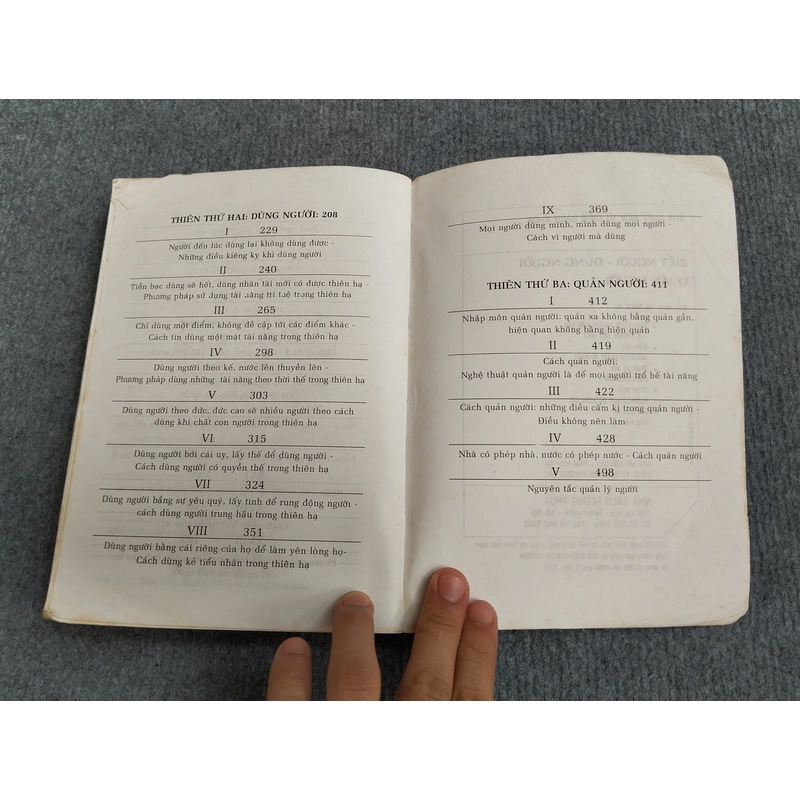 THIÊN THỨ HAI: DÙNG NGƯỜI: 208
I 229
Người đến lúc dùng lại không dùng được -
Những điều kiêng kỵ khi dùng người
II 240
Tiền bạc dùng sẽ hết, dùng nhân tài mới có được thiên hạ -
Phương pháp sử dụng tài năng trí tuệ trong thiên hạ
III 265
Chỉ dùng một điểm, không đề cập tới các điểm khác -
Cách tin dùng một mặt tài năng trong thiên hạ
IV 298
Dùng người theo kế, nước lên thuyền lên -
Phương pháp dùng những tài năng theo thời thế trong thiên hạ
V 303
Dùng người theo đức, đức cao sẽ nhiều người theo cách
dùng khí chất con người trong thiên hạ
VI 315
Dùng người bởi cái uy, lấy thế để dùng người -
Cách dùng người có quyền thế trong thiên hạ
VII 324
Dùng người bằng sự yêu quý, lấy tình để rung động người -
cách dùng người trung hậu trong thiên hạ
VIII 351
Dùng người bằng cái riêng của họ để làm yên lòng họ-
Cách dùng kẻ tiểu nhân trong thiên hạ
IX 369
Mọi người dùng mình, mình dùng mọi người -
Cách vì người mà dùng
THIÊN THỨ BA: QUẢN NGƯỜI: 411
I 412
Nhập môn quản người: quản xa không bằng quản gần,
hiện quan không bằng hiện quản
II 419
Cách quản người:
Nghệ thuật quản người là để mọi người trổ hế tài năng
III 422
Cách quản người: những điều cấm kị trong quản người -
Điều không nên làm
IV 428
Nhà có phép nhà, nước có phép nước - Cách quản người
V 498
Nguyên tắc quản lý người